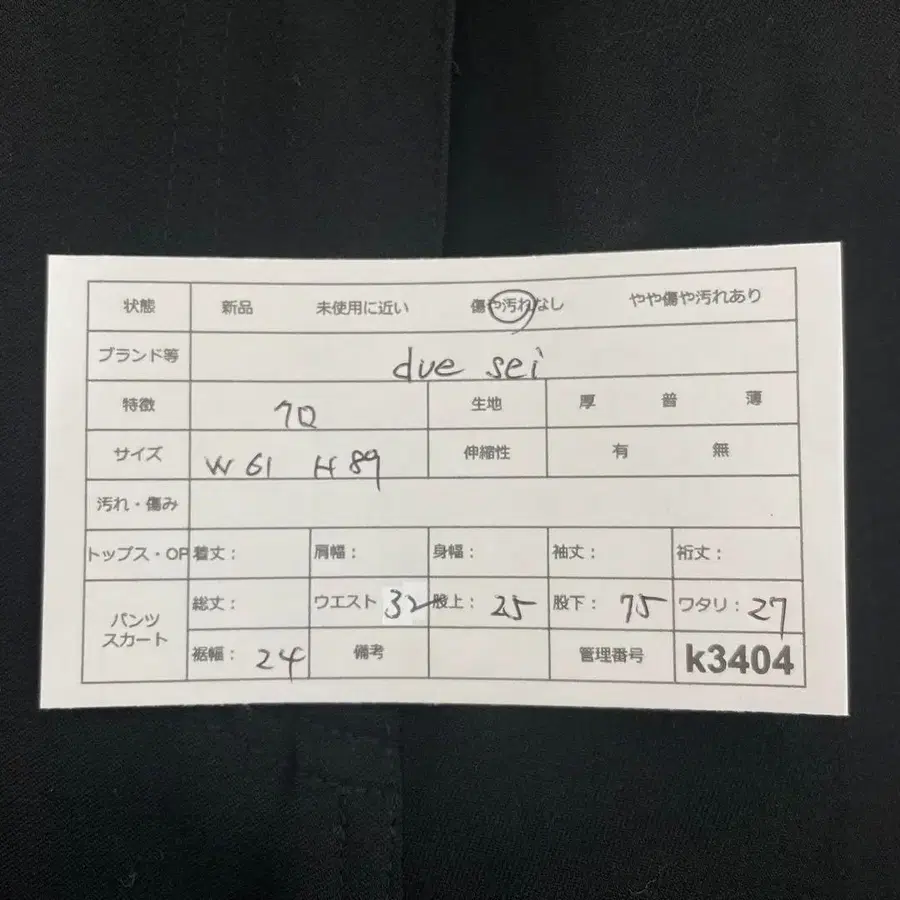 状態 新品 未使用に近い 傷や汚れなし やや傷や汚れあり
ブランド等 due sei
特徴 70 生地 厚 普 薄
サイズ W 61 H 89 伸縮性 有 無
汚れ・傷み
トップス・OP 着丈: 肩幅: 身幅: 袖丈: 裄丈:
パンツ スカート 総丈: ウエスト 32 股上: 25 股下: 75 ワタリ: 27
裾幅: 24 備考 管理番号 k3404